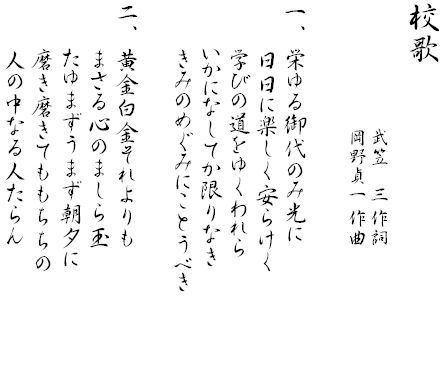 校歌
武笠　三 作詞
岡野貞一 作曲
一、
栄ゆる御代のみ光に
日日に楽しく安らけく
学びの道をゆくわれら
いかになしてか限りなき
きみのめぐみにことうべき
二、
黄金白金それよりも
まさる心のましら玉
たゆまずうまず朝夕に
磨き磨きてももちちの
人の中なる人たらん